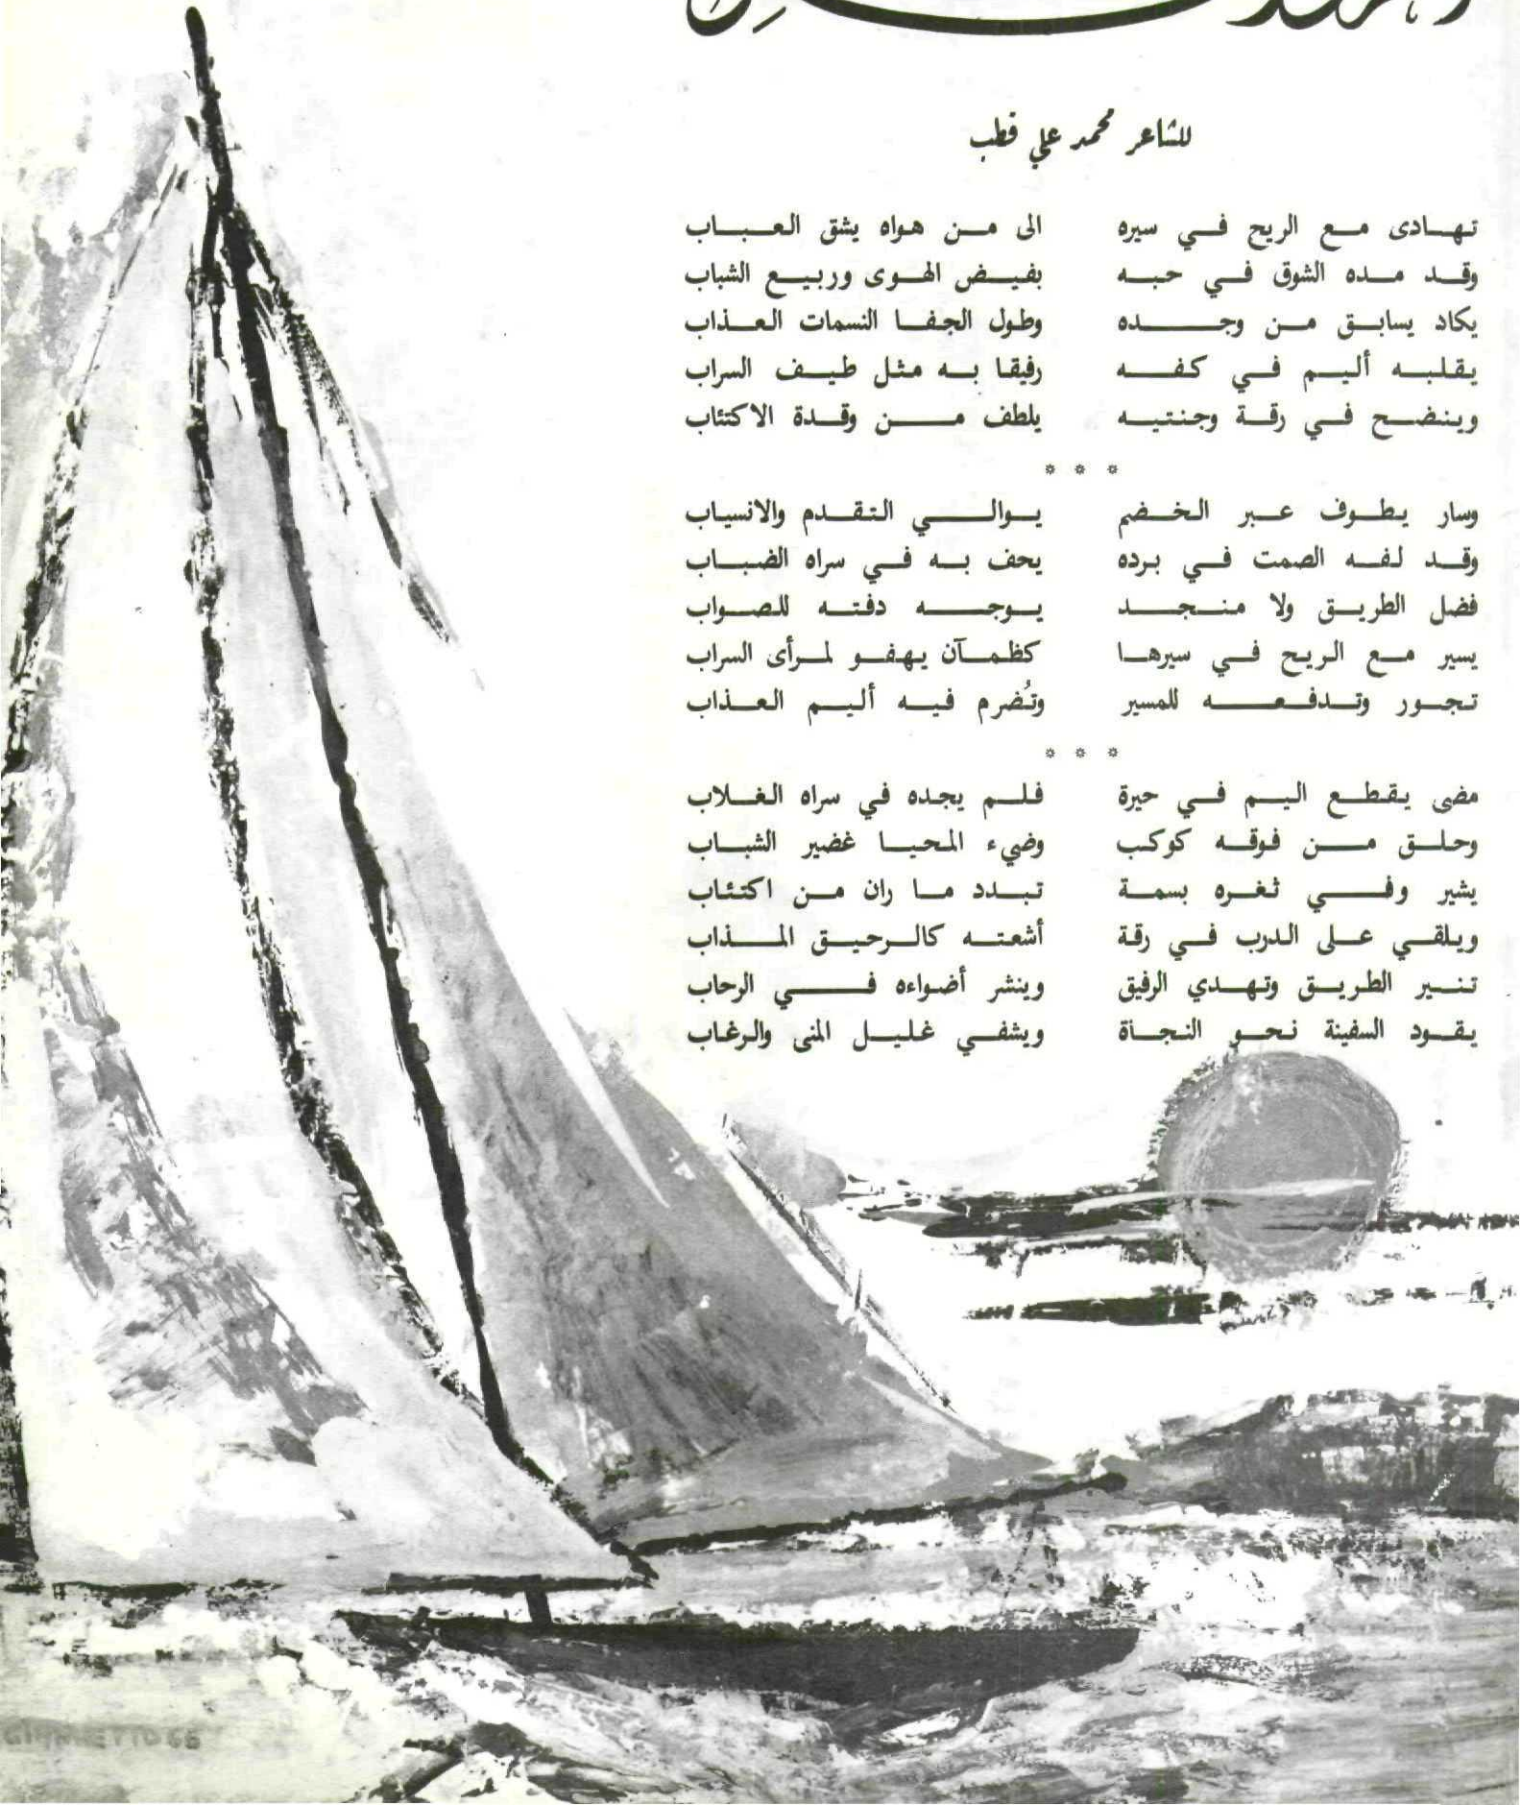 للشاعر محمد علي قطب
تهادى مع الريح في سيره الى من هواه يشق العباب
وقد مده الشوق في حبه بفيض الهوى وربيع الشباب
يكاد يسابق من وجده وطول الجفا النسمات العذاب
يقلبه أليم في كفه رفيقا به مثل طيف السراب
وينضح في رقة وجنتيه يلطف من وقدة الاكتئاب
* * *
وسار يطوف عبر الخضم يوالي التقدم والانسياب
وقد لفه الصمت في برده يحف به في سراه الضباب
فضل الطريق ولا منجد يوجه دفته للصواب
يسير مع الريح في سيرها كظمآن يهفو لمرأى السراب
تجور وتدفعه للمسير وتُضرم فيه أليم العذاب
* * *
مضى يقطع اليم في حيرة فلم يجده في سراه الغلاب
وحلق من فوقه كوكب وضيء المحيا غضير الشباب
يشير وفي ثغره بسمة تبدد ما ران من اكتئاب
ويلقي على الدرب في رقة أشعته كالرحيق المذاب
تنير الطريق وتهدي الرفيق وينشر أضواءه في الرحاب
يقود السفينة نحو النجاة ويشفي غليل المنى والرغاب